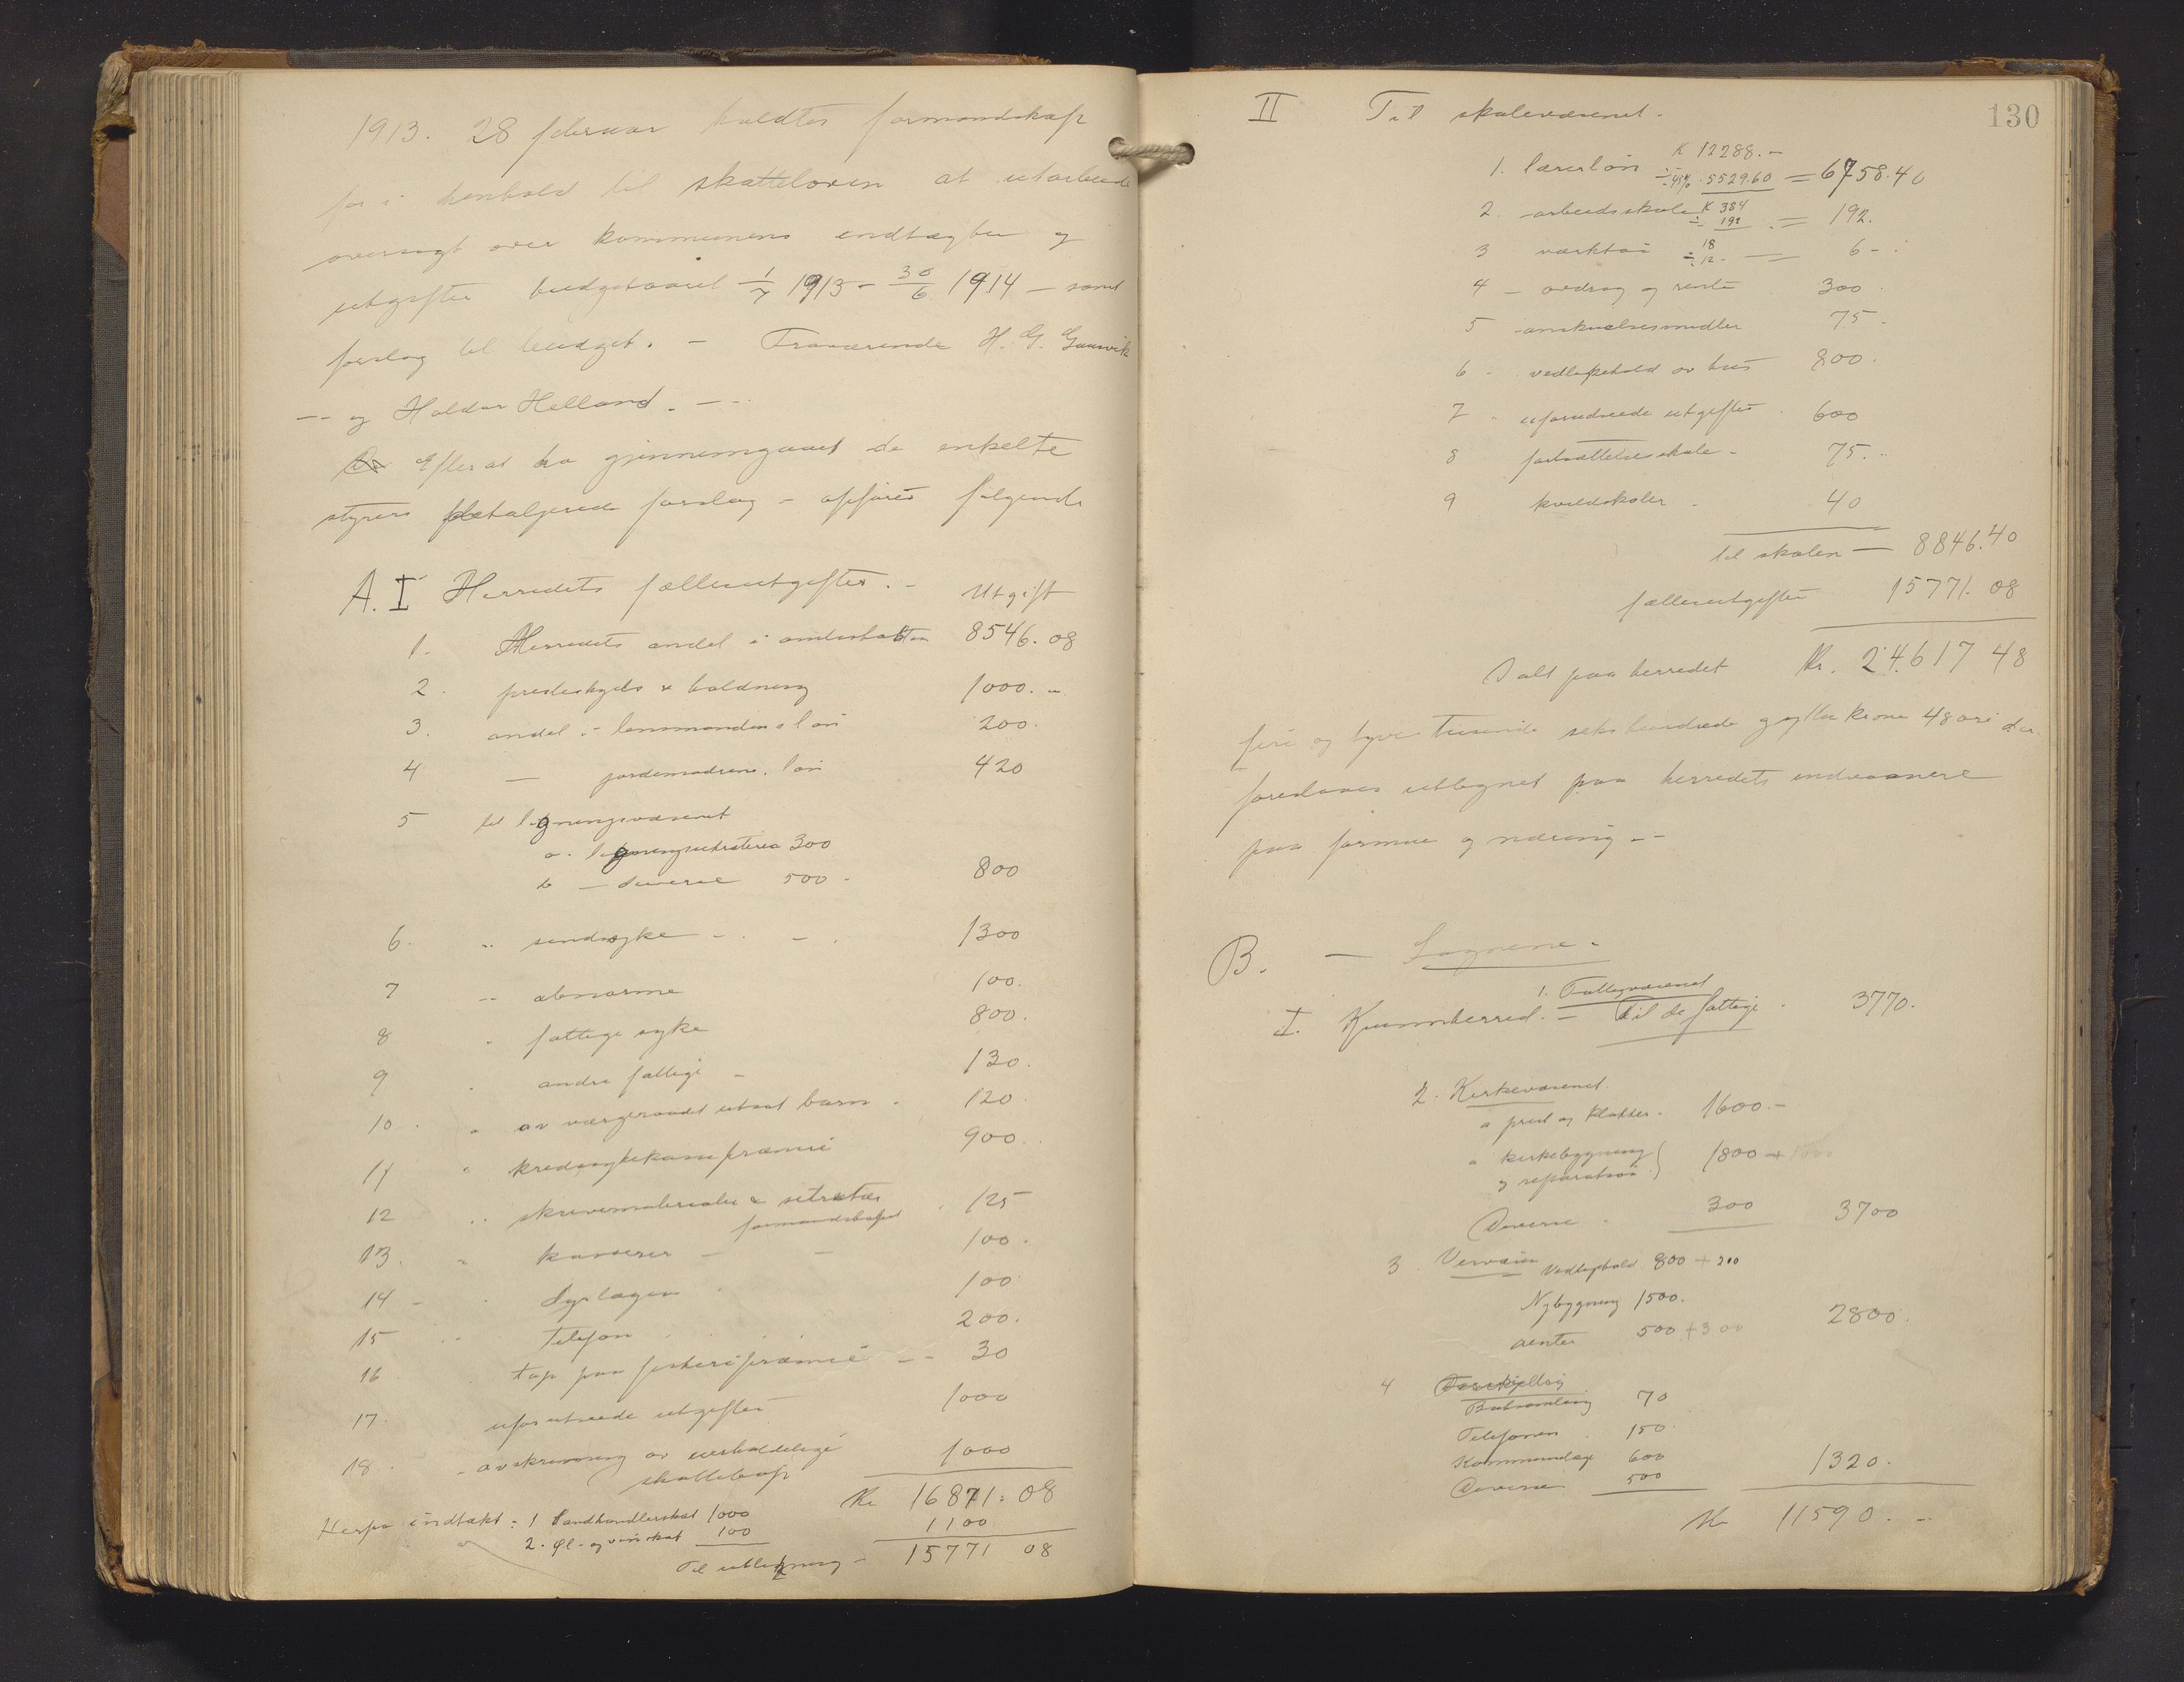 1913. 28 februar holdtes formandskap
for i henhold til skatteloven at utarbeide
oversigt over kommunens indtægter og
utgifter budgetaaret 1/7 1913 - 30/6 1914 - samt
forslag til budget. - Fraværende H. G. Gausvik
-- og Haldor Helland. --
Efterat ha gjennemgaaet de enkelte
styrers detaljerede forslag - opføres følgende
A. I Herredets fællesutgifter. - Utgift
1. Herredets andel i amtsskatten 8546. 08
2. presteskyds & holdning 1000. -
3. andel i lensmandens løn 200.
4. — jordemødrenes løn 420
5 til ligningsvæsenet
a. ligningssekretæren 300
b — diverse 500 - 800
6. " sindssyke - . - . 1300
7 " abnorme 100.
8 " fattige syke 800.
9 " andre fattige - 130.
10 . " av værgeraadet utsat barn . 120.
11 " kredssykekassepræmie 900.
12 " skrivematerialer & sekretær
formandskapet . 125
13. " kasserer - - 100.
14 - " Dyrlægen . 100
15 " Telefon . . . 200.
16 " tap paa fiskeripræmie -- 30
17. uforutseede utgifter 1000
18. - avskrivning av uerholdelige
skattebeløp 1000
Kr 16871. 08
Herpaa indtækt: 1 Landhandlerskat 1000
2. Øl- og vinskat 100 1100
Til utligning - 15771 08
130
II Til skolevæsenet.
K 12288.-
1. lærerløn ÷ 45% . 5529.60 = 6758.40
2. - arbeidsskole K 384 ÷ 192 = 192.
3 værktøi 18 ÷ 12 - = 6 -
4 - avdrag og rente 300.
5 - anskuelsesmidler 75 -
6 - vedlikehold av hus 800.
7 " uforutseede utgifter . 600
8 fortsættelsesskole - 75.
9 kveldskoler - 40
til skolen — 8846.40
fællesutgifter 15771. 08
I alt paa herredet Kr. 24.617 48
fire og tyve tusinde seks hundrede og sytten kroner 48 øre der
foreslaaes utlignet paa herredets indvaanere
paa formue og næring --
B. — Sognene.
1. Fattigvæsenet
I. Kvinnherred. - Til de fattige . 3770.
2. Kirkevæsenet.
a prest og klokker. 1600.-
" kirkebygning
og reparation } 1800 + 1000
Diverse . 300 3700
3. Veivæsen Vedlikehold 800 + 200
Nybygning 1500.
renter 500 + 300 2800.
4 Forskjellig
70
Telefonen . 150.
Kommunelæge 600
Diverse 500 1320.
Kr 11590. -